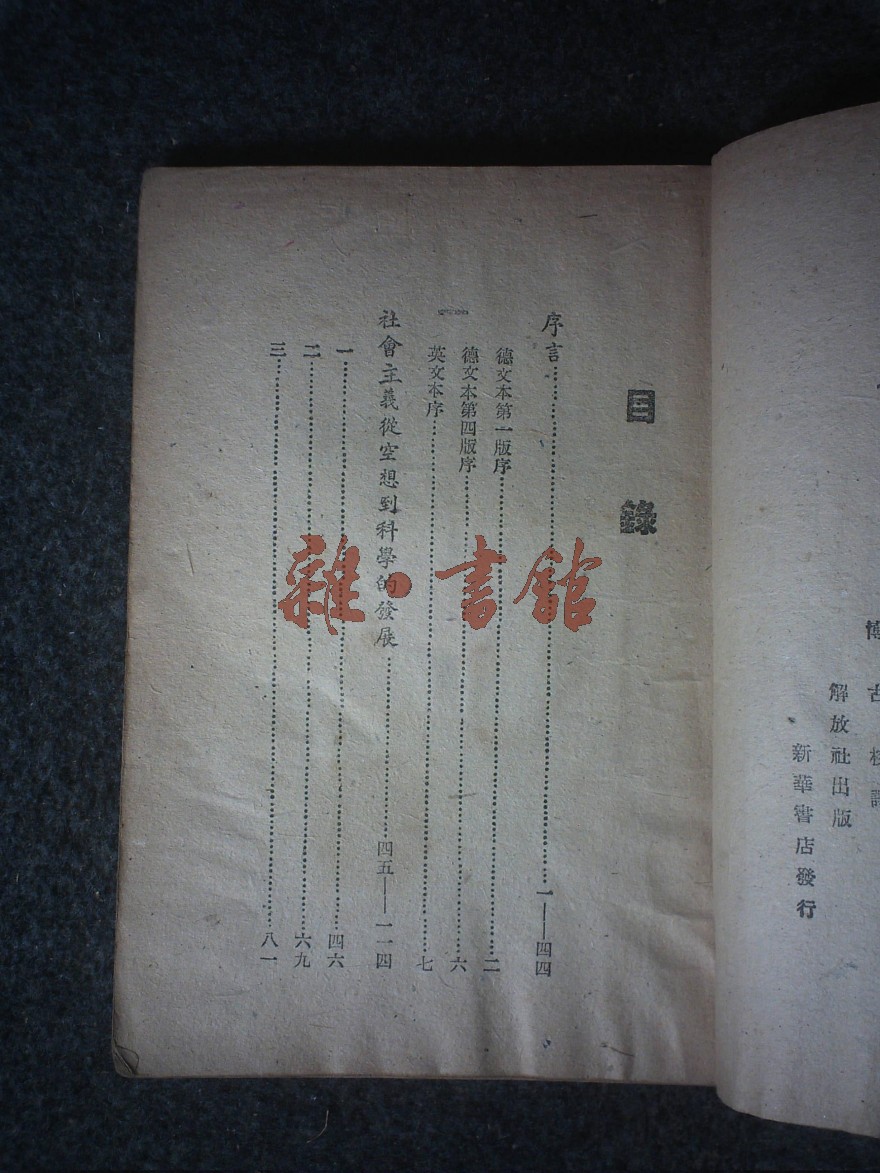 博古校譯
解放社出版
新華書店發行
目錄
序言……一——四四
德文本第一版序……二
德文本第四版序……六
英文本序……七
社會主義從空想到科學的發展……四五——一一四
一……四六
二……六九
三……八一
雜·書館